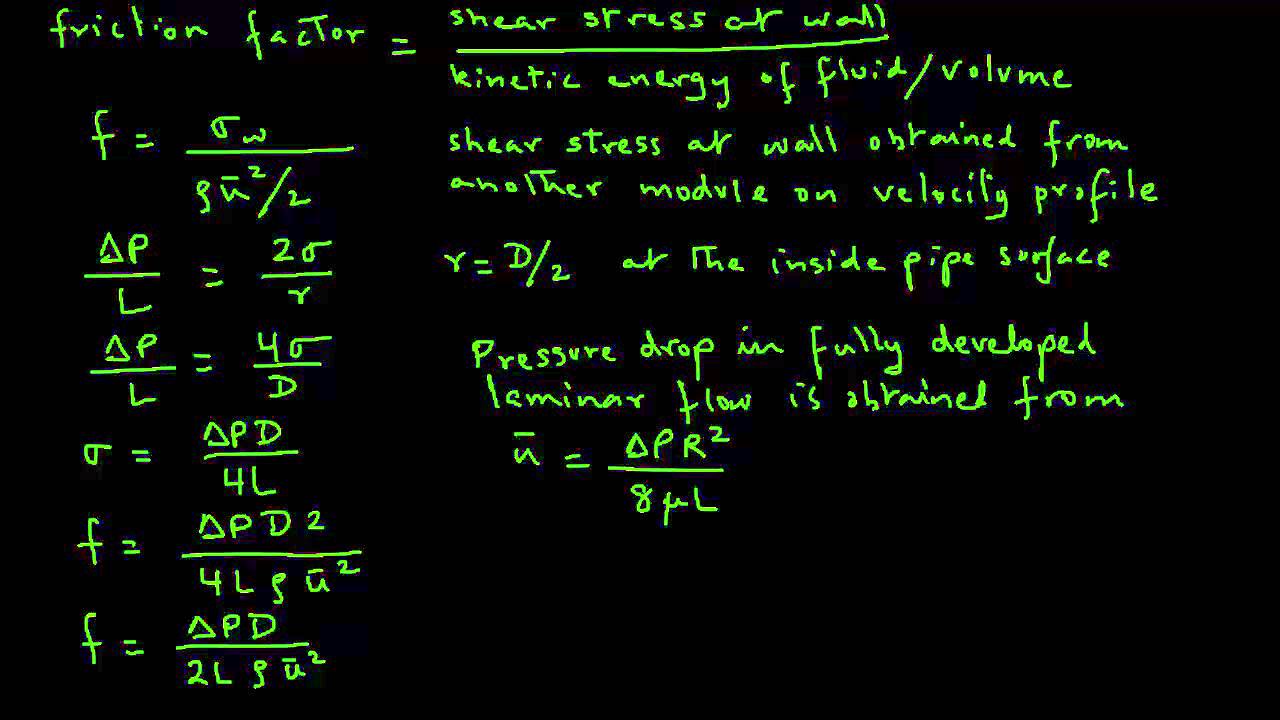 friction factor = shear stress at wall / kinetic energy of fluid/volume
f = σw / ρū²/2
shear stress at wall obtained from
another module on velocity profile
ΔP / L = 2σ / r
r = D/2 at the inside pipe surface
ΔP / L = 4σ / D
Pressure drop in fully developed
laminar flow is obtained from
ū = ΔPR² / 8μL
σ = ΔPD / 4L
f = ΔPD2 / 4Lρū²
f = ΔPD / 2Lρū²